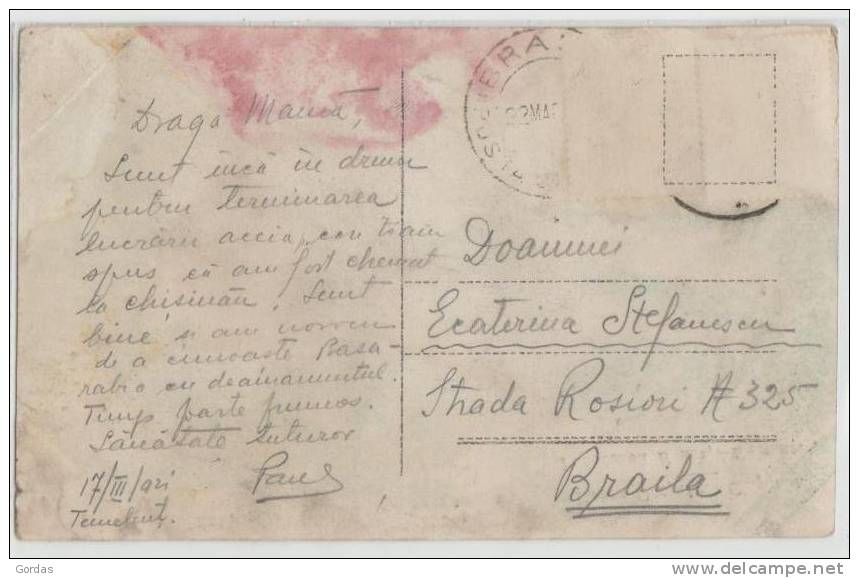 Draga Mamă,
Sunt încă în drum
pentru terminarea
lucrării aceia, con
spus că am fost chemat
la Chisinău. Sunt
bine și am noroc
de a cunoaste Basa-
rabia cu deamanuntul.
Timp foarte frumos.
Sănătate tuturor
17/III/921
Pavel
BRAILA
22 MAR
Doamnei
Ecaterina Stefanescu
Strada Rosiori № 325
Braila
Gordas
delcampe.net